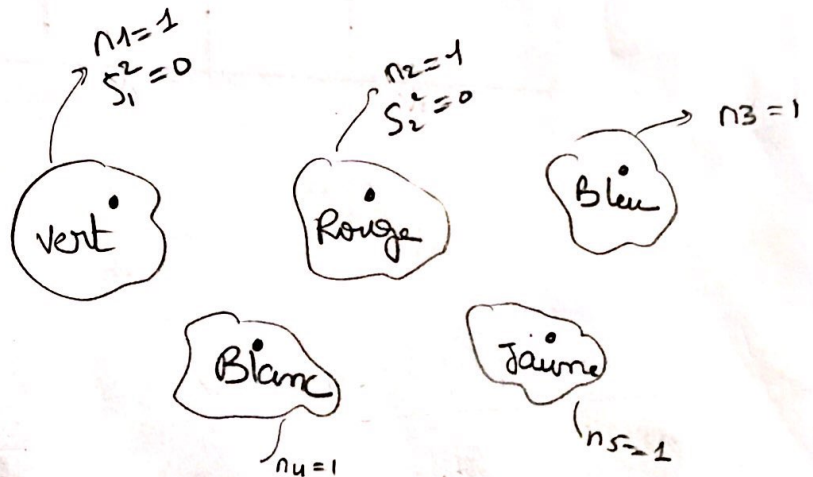 n1=1
S₁²=0
n2=1
S₂²=0
n3=1
Vert
Rouge
Bleu
Blanc
Jaune
n4=1
n5=1